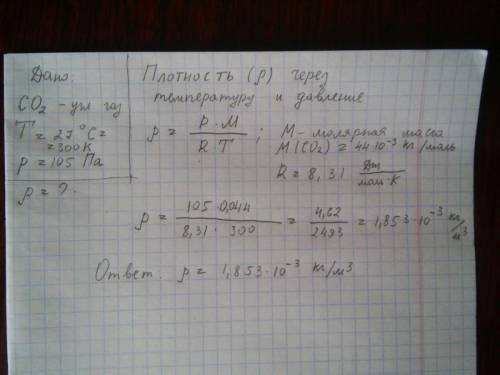 Дано:
CO₂ - угл газ
T = 27°C =
= 300К
p = 105 Па
ρ = ?
Плотность (ρ) через
температуру и давление
ρ = P · M / R T ; M - молярная масса
M(CO₂) = 44·10⁻³ кг/моль
R = 8,31 Дж/моль·К
ρ = 105·0,044 / 8,31·300 = 4,62 / 2493 = 1,853·10⁻³ кг/м³
Ответ: ρ = 1,853·10⁻³ кг/м³